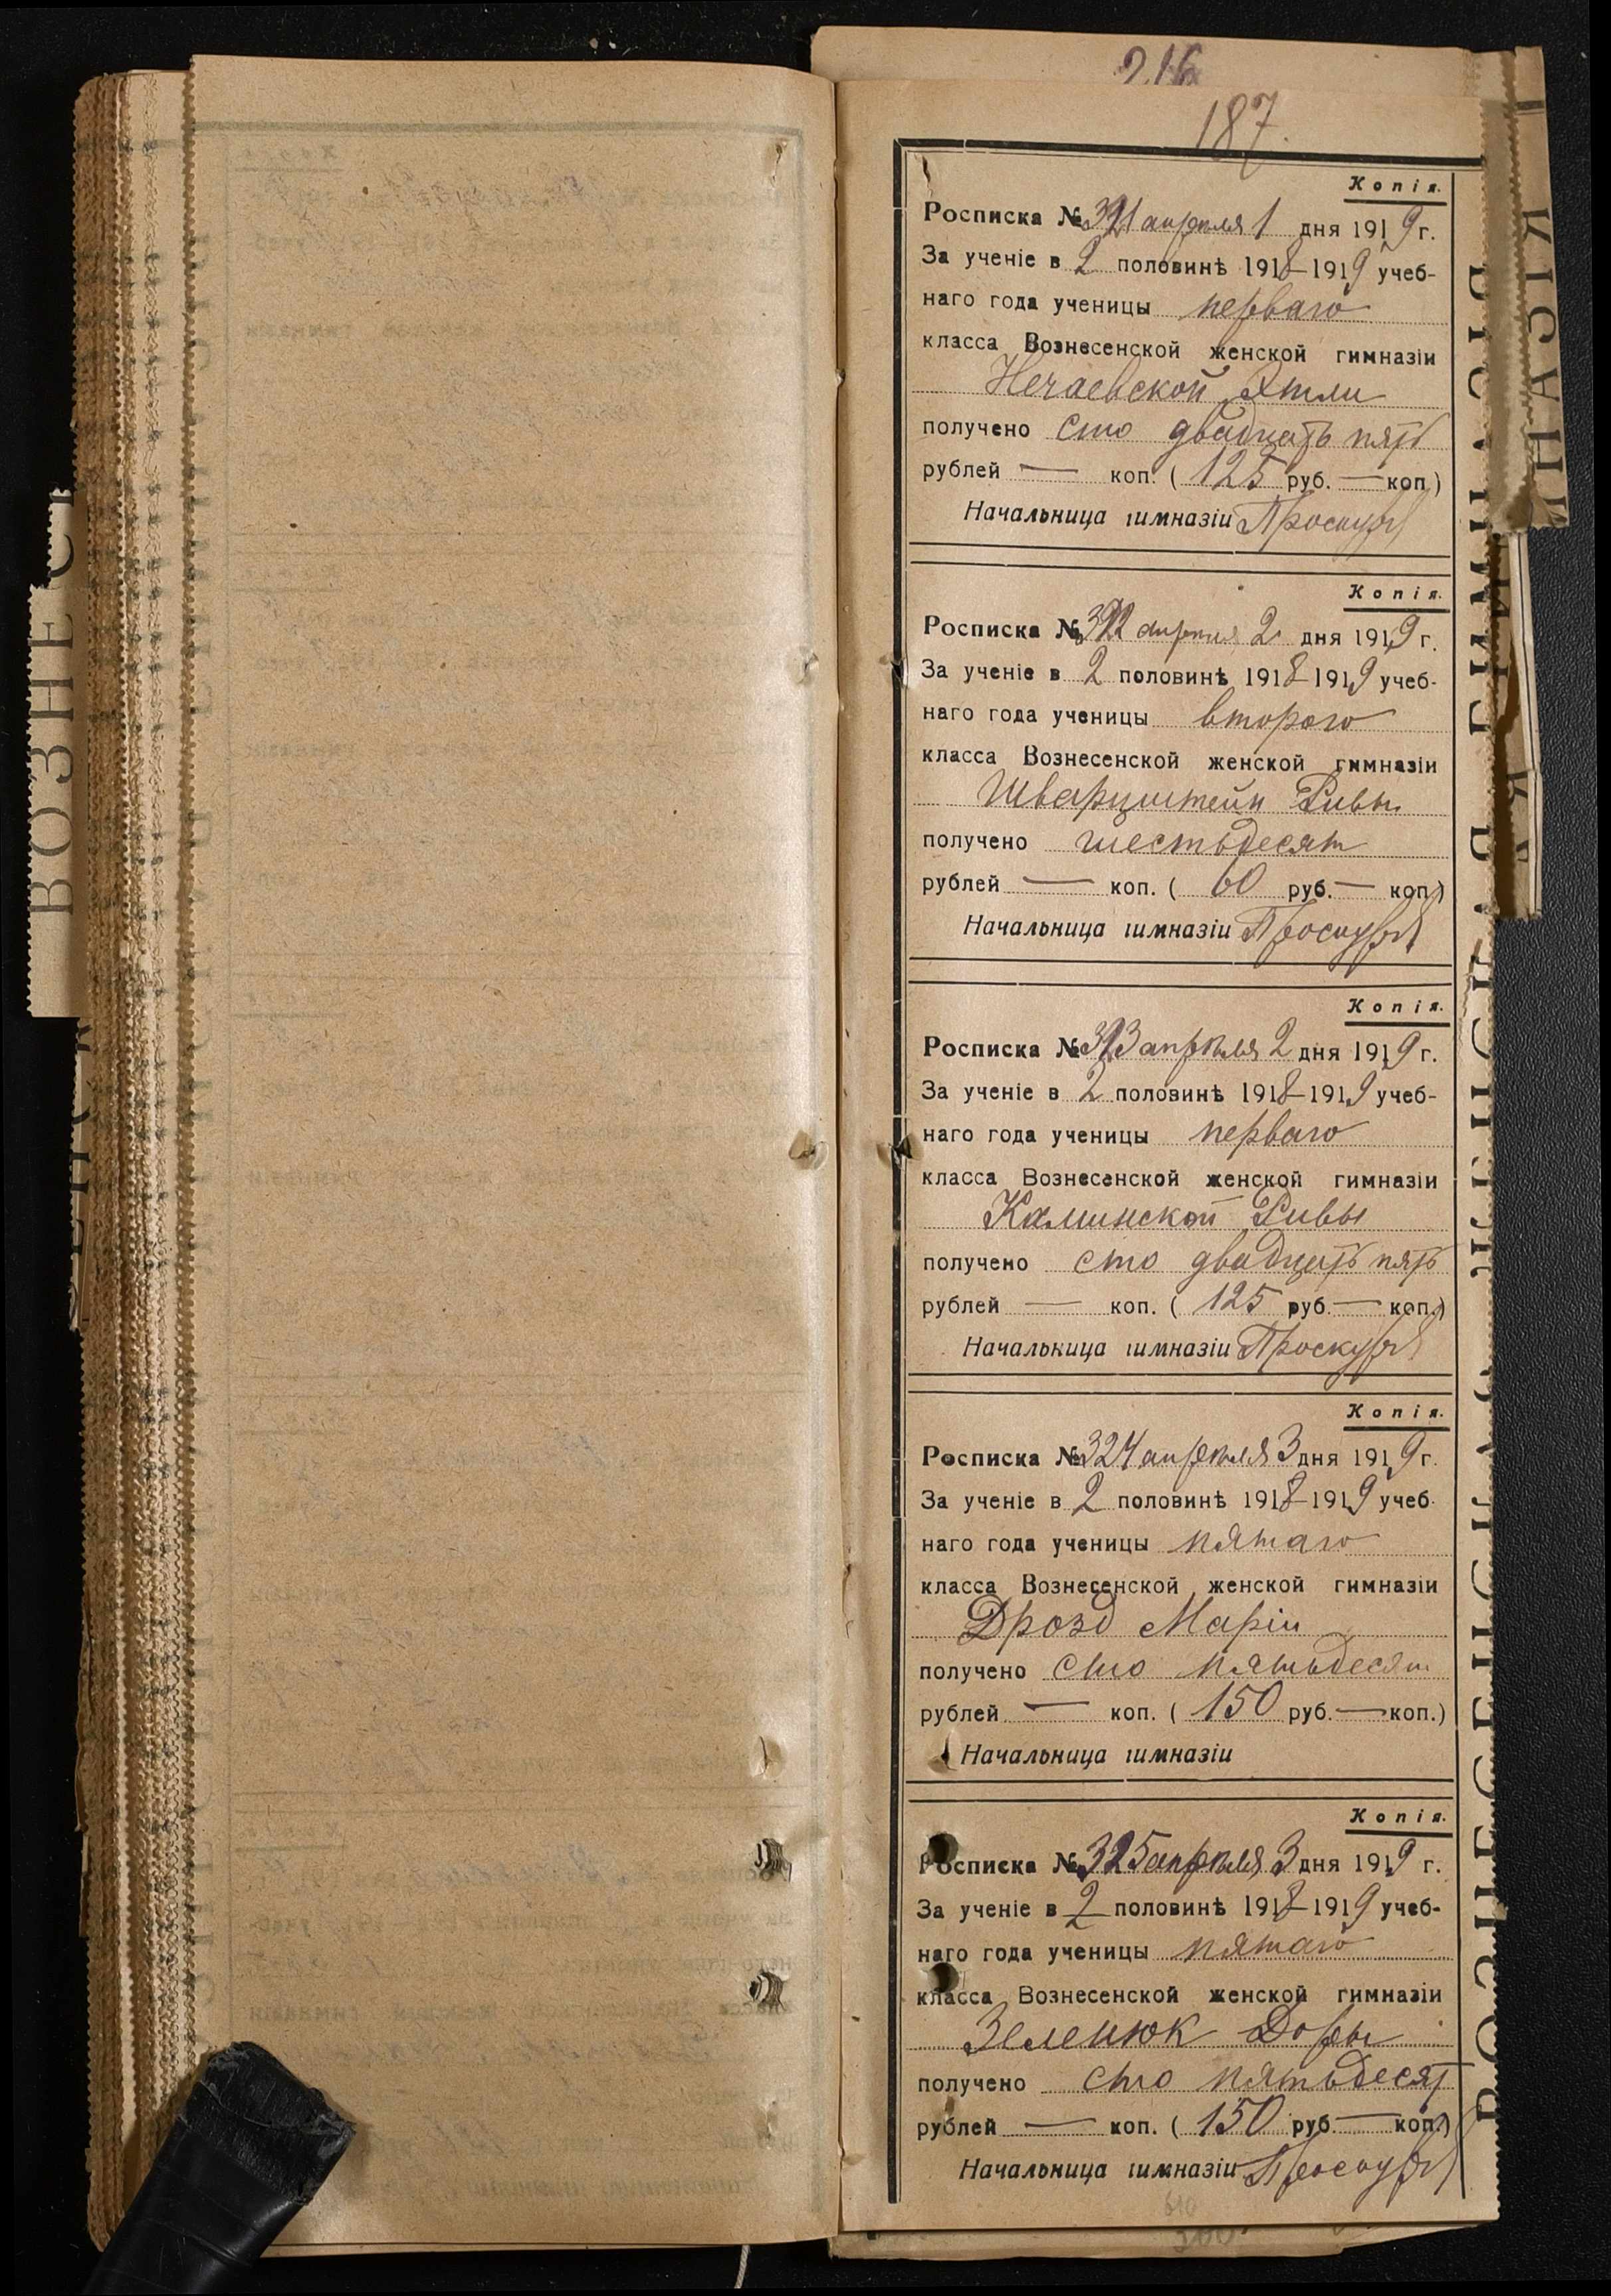 216
187.
Копія.
Росписка № 321 апрѣля 1 дня 1919 г.
За ученіе в 2 половинѣ 1918–1919 учеб-
наго года ученицы перваго
класса Вознесенской женской гимназіи
Нечаевской Этли
получено сто двадцать пять
рублей — коп. ( 125 руб. — коп.)
Начальница гимназіи
Копія.
Росписка № 322 апрѣля 2 дня 1919 г.
За ученіе в 2 половинѣ 1918–1919 учеб-
наго года ученицы второго
класса Вознесенской женской гимназіи
Шварцштейн Ривы
получено шестьдесят
рублей — коп. ( 60 руб. — коп.)
Начальница гимназіи
Копія.
Росписка № 323 апрѣля 2 дня 1919 г.
За ученіе в 2 половинѣ 1918–1919 учеб-
наго года ученицы перваго
класса Вознесенской женской гимназіи
Каминской Ривы
получено сто двадцать пять
рублей — коп. ( 125 руб. — коп.)
Начальница гимназіи
Копія.
Росписка № 324 апрѣля 3 дня 1919 г.
За ученіе в 2 половинѣ 1918–1919 учеб-
наго года ученицы пятаго
класса Вознесенской женской гимназіи
Дрозд Маріи
получено сто пятьдесят
рублей — коп. ( 150 руб. — коп.)
Начальница гимназіи
Копія.
Росписка № 325 апрѣля 3 дня 1919 г.
За ученіе в 2 половинѣ 1918–1919 учеб-
наго года ученицы пятаго
класса Вознесенской женской гимназіи
Зеленюк Доры
получено сто пятьдесят
рублей — коп. ( 150 руб. — коп.)
Начальница гимназіи
ВОЗНЕС